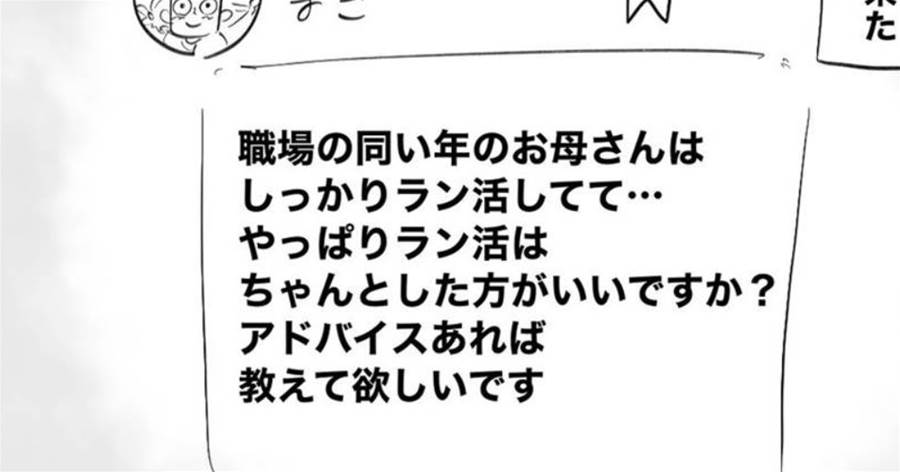 まこ
来た
職場の同い年のお母さんは
しっかりラン活してて…
やっぱりラン活は
ちゃんとした方がいいですか？
アドバイスあれば
教えて欲しいです